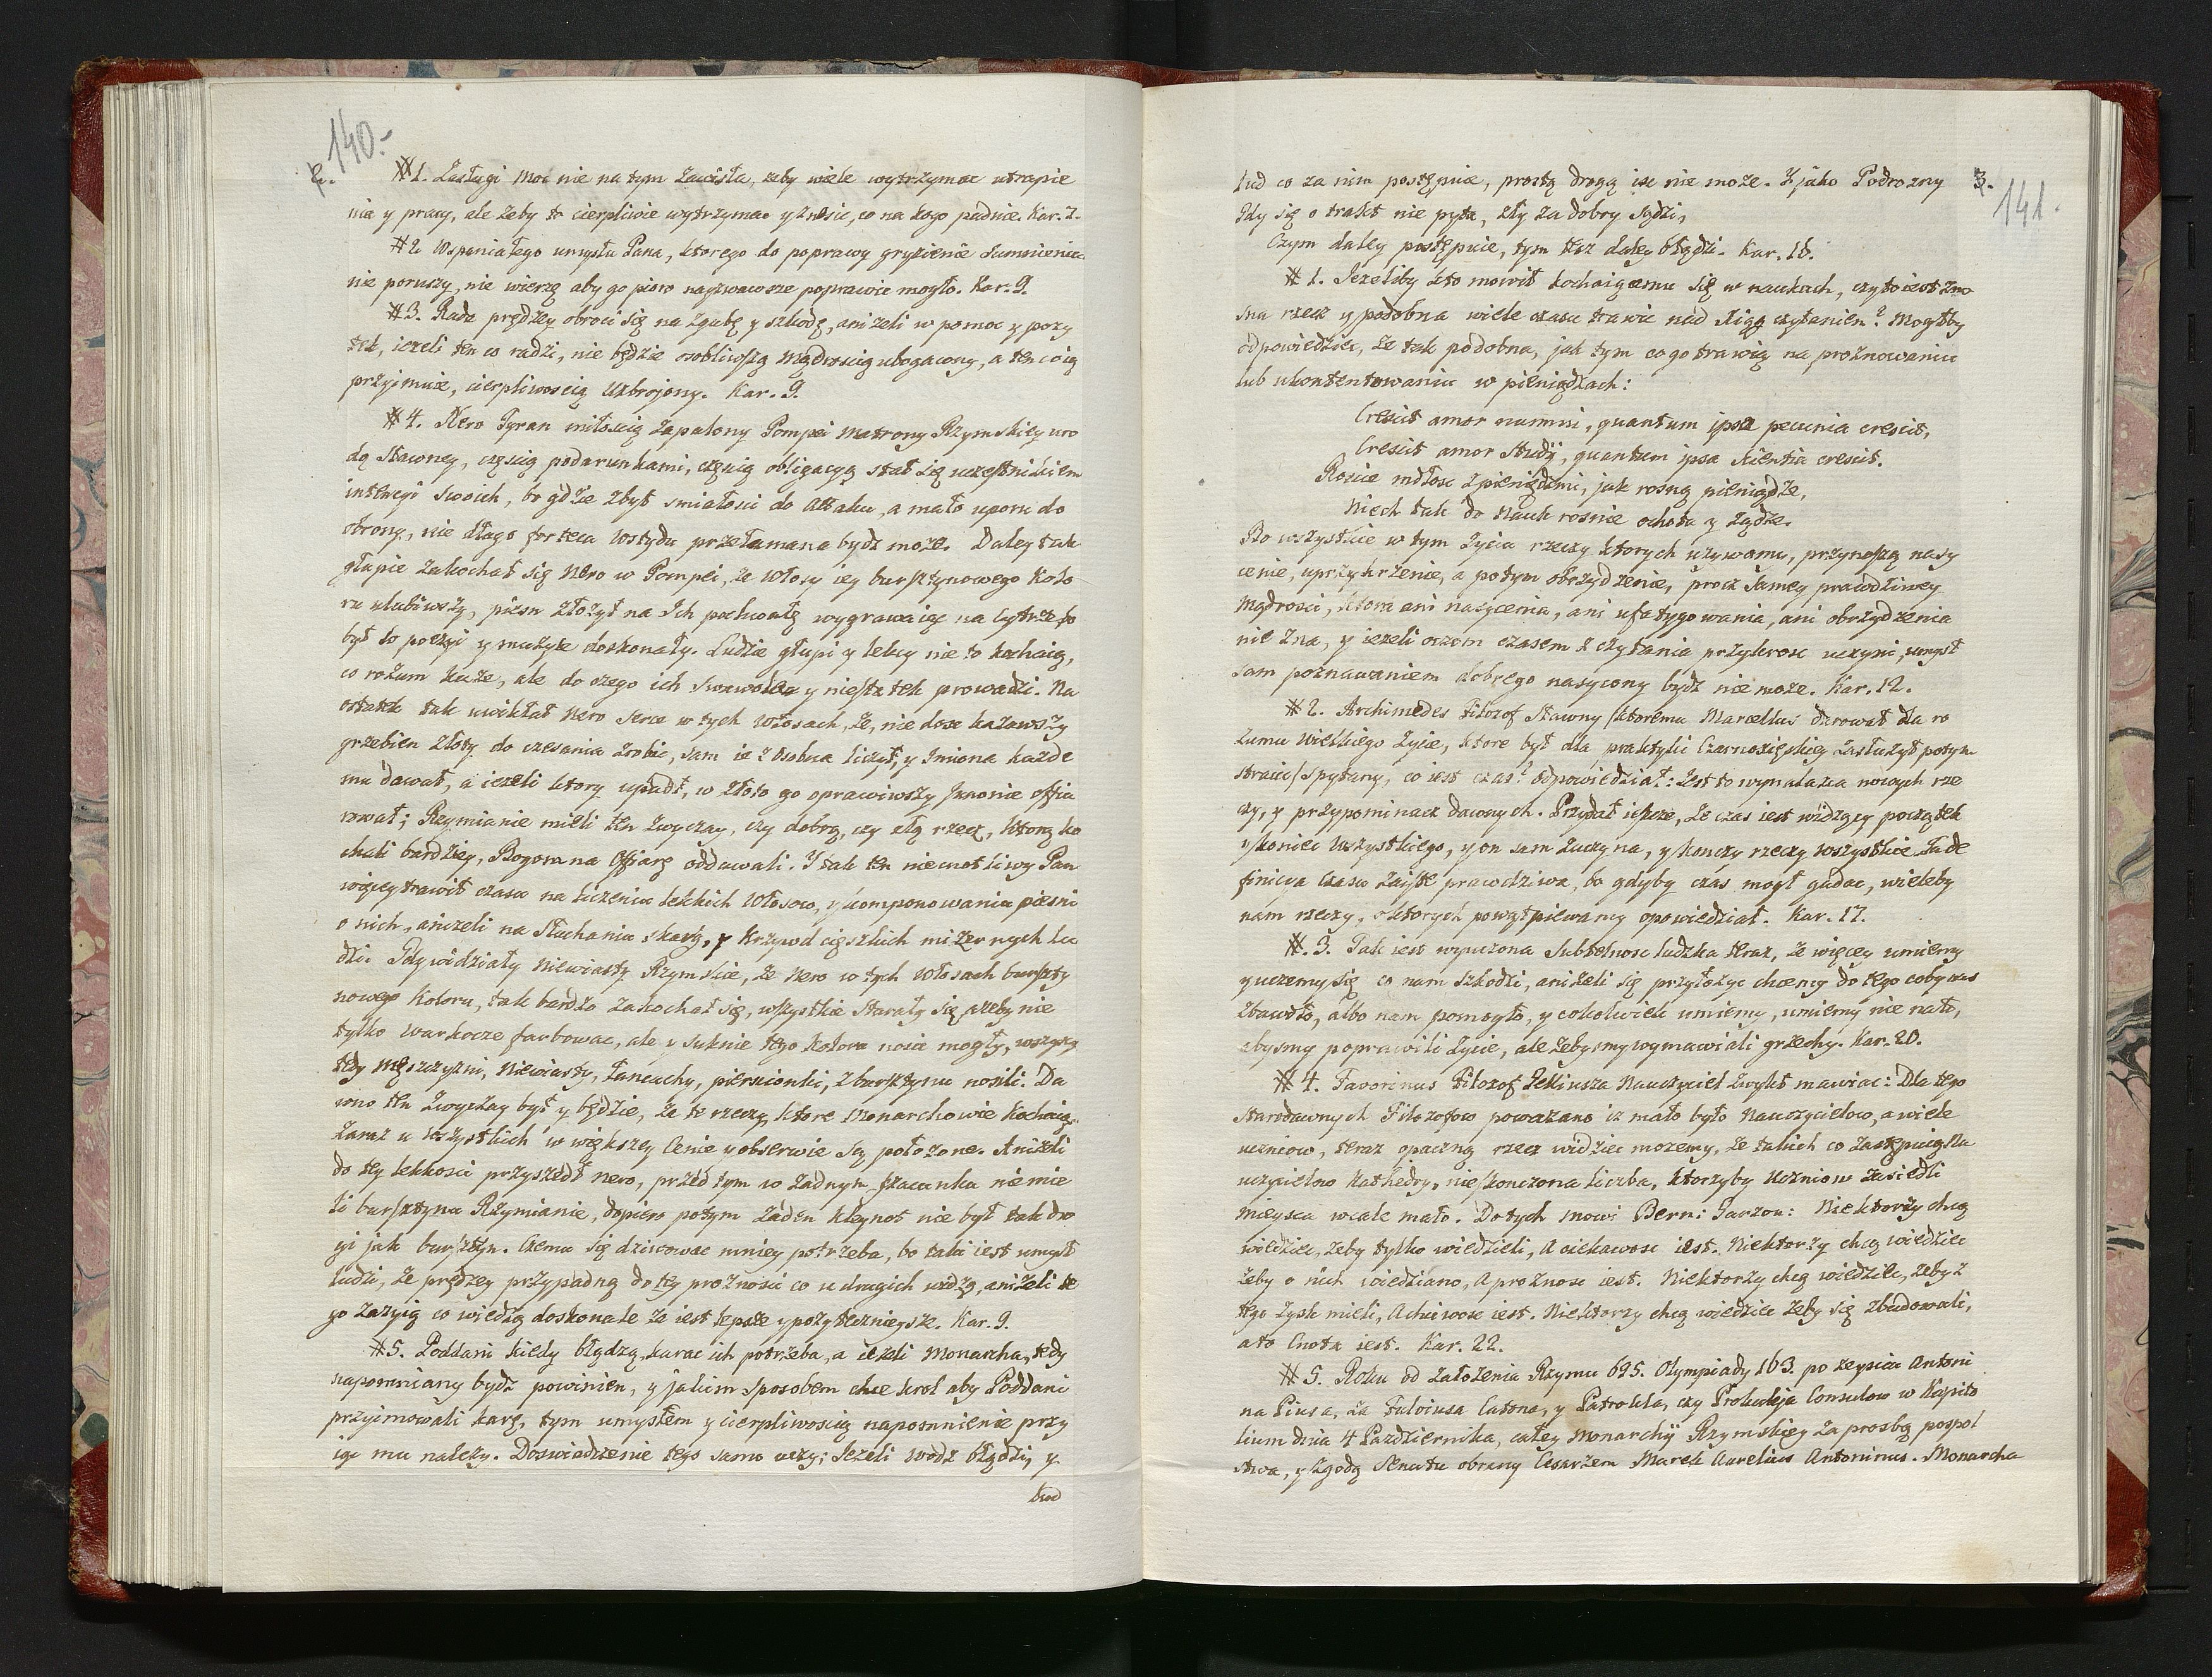 140.-
2.
#1. Zasługi moc nie na tym zawisła, zeby wiele wytrzymac utrapie
nia y pracy, ale żeby to cierpliwie wytrzymac y znosic, co na kogo padnie. Kar. 2.
#2 Wspaniałego umysłu Pana, ktorego do poprawy gryzienie sumnienia
nie poruszy, nie wierzę aby go pioro nayżwawsze poprawic mogło. Kar. 9.
#3. Rada prędzey obroci się na zgubę y szkodę, aniżeli w pomoc y pozy
tek, ieżeli ten co radzi, nie będzie osobliwszą mądroscią ubogacony, a ten co ią
przyimuie, cierpliwoscią uzbrojony. Kar. 9.
#4. Nero Tyran miłoscią zapalony Pompei Matrony Rzymskiey uro
dą sławney, częscią podarunkami, częscią obligacyą stał się uczestnikiem
intencyi swoich, bo gdzie zbyt smiałosci do attaku, a mało uporu do
obrony, nie długo forteca wstydu przełamana bydz może. Daley tak
głupie zakochał się Nero w Pompei, że włosy iey bursztynowego kolo
ru ulubiwszy, piesn złożył na Ich pochwałę wygrawaiąc na Cytrze bo
był do poezyi y muzyke doskonały. Ludzie głupi y lekcy nie to kochaią,
co rozum każe, ale do czego ich swawola y niestatek prowadzi. Na
ostatek tak uwikłał Nero serce w tych włosach, że, nie dosc kazawszy
grzebien złoty do czesania zrobic, sam ie z osobna liczył, y Imiona każde
mu dawał, a ieżeli ktory upadł, w złoto go oprawiwszy Junonie offia
rował; Rzymianie mieli ten zwyczay, czy dobrą, czy złą rzecz, ktorą ko
chali bardziey, Bogom na Offiarę oddawali. Y tak ten niecnotliwy Pan
więcey trawił czasu na liczeniu lekkich włosow, y komponowaniu piesni
o nich, aniżeli na słuchaniu skarg, y krzywd cięszkich mizernych lu
dzi. Gdy widziały Niewiasty Rzymskie, że Nero w tych włosach burszty
nowego koloru, tak bardzo zakochał się, wszystkie starały się ażeby nie
tylko warkocze farbowac, ale y suknie tego koloru nosic mogły, wszyscy
tedy męszczyzni, Niewiasty, Łancuchy, piersionki, z bursztynu nosili. Da
wno ten zwyczay był y będzie, że te rzeczy, ktore Monarchowie kochaią,
zaraz u wszystkich w większey Cenie y obserwie są położone. Aniżeli
do tey lekkosci przyszedł Nero, przed tym w żadnym szacunku nie mie
li bursztynu Rzymianie, dopiero potym żaden kleynot nie był tak dro
gi jak bursztyn. Czemu się dziwowac mniey potrzeba, bo taki iest umysł
ludzi, że prędzey przypadną do tey prożnosci co u drugich widzą, aniżeli te
go zażyią co wiedzą doskonale że iest lepsze y pożytecznieysze. Kar. 9.
#5. Poddani kiedy błądzą, karac ich potrzeba, a ieżeli Monarcha, tedy
napomniany bydz powinien, y jakim sposobem chce krol aby Poddani
przyimowali karę, tym umysłem y cierpliwoscią napomnienie przy
iąc mu należy. Doswiadczenie tego samo uczy; Jeżeli wodz błądzi, y
lud
141.
3.
lud co za nim postępuie, prostą drogą isc nie może. Y jako Podrożny
Gdy się o trakt nie pyta, zły za dobry sądzi,
Czym daley postępuie, tym też daley błądzi. Kar. 10.
#1. Jeżeliby kto mowił kochaiącemu się w naukach, czy to iest zno
sna rzecz y podobna wiele czasu trawic nad Xiąg czytaniem? Mogłby
odpowiedziec, że tak podobna, jak tym co go trawią na prożnowaniu
lub ukontentowaniu w pieniądzach:
Crescit amor nummi, quantum ipsa pecunia crescit,
Crescit amor Studij, quantum ipsa scientia crescit.
Rosnie miłosc z pieniędzmi, jak rosną pieniądze,
Niech tak do Nauk rosnie ochota y żądze.
Bo wszystkie w tym życiu rzeczy ktorych używamy, przynoszą nasy
cenie, uprzykrzenie, a potym obrzydzenie, procz samey prawdziwey
mądrosci, ktora ani nasycenia, ani ufatygowania, ani obrzydzenia
nie zna, y ieżeli oczom czasem z czytania przykrosc uczyni, umysł
sam poznawaniem dobrego nasycony bydz nie może. Kar. 12.
#2. Archimedes Filozof sławny /ktoremu Marcellus darował dla ro
zumu wielkiego życie, ktore był dla praktyki Czarnoxięskiey zasłużył potym
stracic/ spytany, co iest czas? odpowiedział: Jest to wynalazca nowych rze
czy, y przypominacz dawnych. Przydał ieszcze, że czas iest widzący początek
y koniec wszystkiego, y on sam zaczyna, y konczy rzeczy wszystkie. Ta de
finicya czasu zaiste prawdziwa, bo gdyby czas mogł gadac, wieleby
nam rzeczy, o ktorych powątpiewamy opowiedział. Kar. 17.
#.3. Tak iest wyuczona subtelnosc ludzka teraz, że więcey umiemy
y uczemy się co nam szkodzi, aniżeli się przyłożyc chcemy do tego coby nas
zbawiło, albo nam pomogło, y cokolwiek umiemy, umiemy nie nato,
abysmy poprawili życie, ale żebysmy wymawiali grzechy. Kar. 20.
#4. Favorinus Filozof Gelliusza Nauczyciel zwykł mawiac: Dla tego
starodawnych Filozofow poważano iż mało było Nauczycielow, a wiele
uczniow, teraz opaczną rzecz widziec możemy, że takich co zastępuią Na
uczycielow Kathedry, nieskonczona liczba, ktorzyby Uczniow zasiedli
mieysca wcale mało. Do tych mowi Bern: Garzon: Niektorzy chcą
wiedziec, żeby tylko wiedzieli, A ciekawosc iest. Niektorzy chcą wiedziec
żeby o nich wiedziano, A prożnosc iest. Niektorzy chcą wiedziec, żeby z
tego zysk mieli, A chciwosc iest. Niektorzy chcą wiedziec żeby się zbudowali,
a to Cnota iest. Kar. 22.
#5. Roku od założenia Rzymu 695. Olympiady 163. po zeysciu Antoni
na Piusa, za Fulviusa Catona, y Patrokla, czy Prokuleja Consulow w Kapito
lium dnia 4 Pazdziernika, całey Monarchij Rzymskiey za prosbą pospol
stwa, y zgodą Senatu obrany Cesarzem Marek Aurelius Antoninus. Monarcha